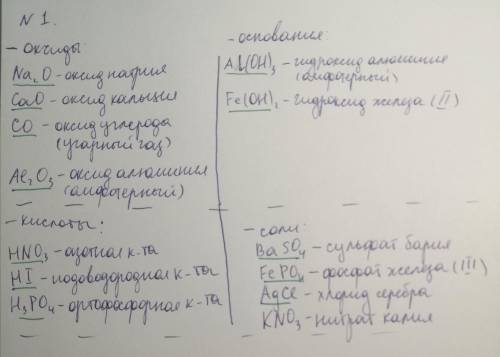 N 1.
- оксиды:
Na₂O - оксид натрия
CaO - оксид кальция
CO - оксид углерода
(угарный газ)
Al₂O₃ - оксид алюминия
(амфотерный)
- основания:
Al(OH)₃ - гидроксид алюминия
(амфотерный)
Fe(OH)₂ - гидроксид железа (II)
- кислоты:
HNO₃ - азотная к-та
HI - иодоводородная к-та
H₃PO₄ - ортофосфорная к-та
- соли:
BaSO₄ - сульфат бария
FePO₄ - фосфат железа (III)
AgCl - хлорид серебра
KNO₃ - нитрат калия